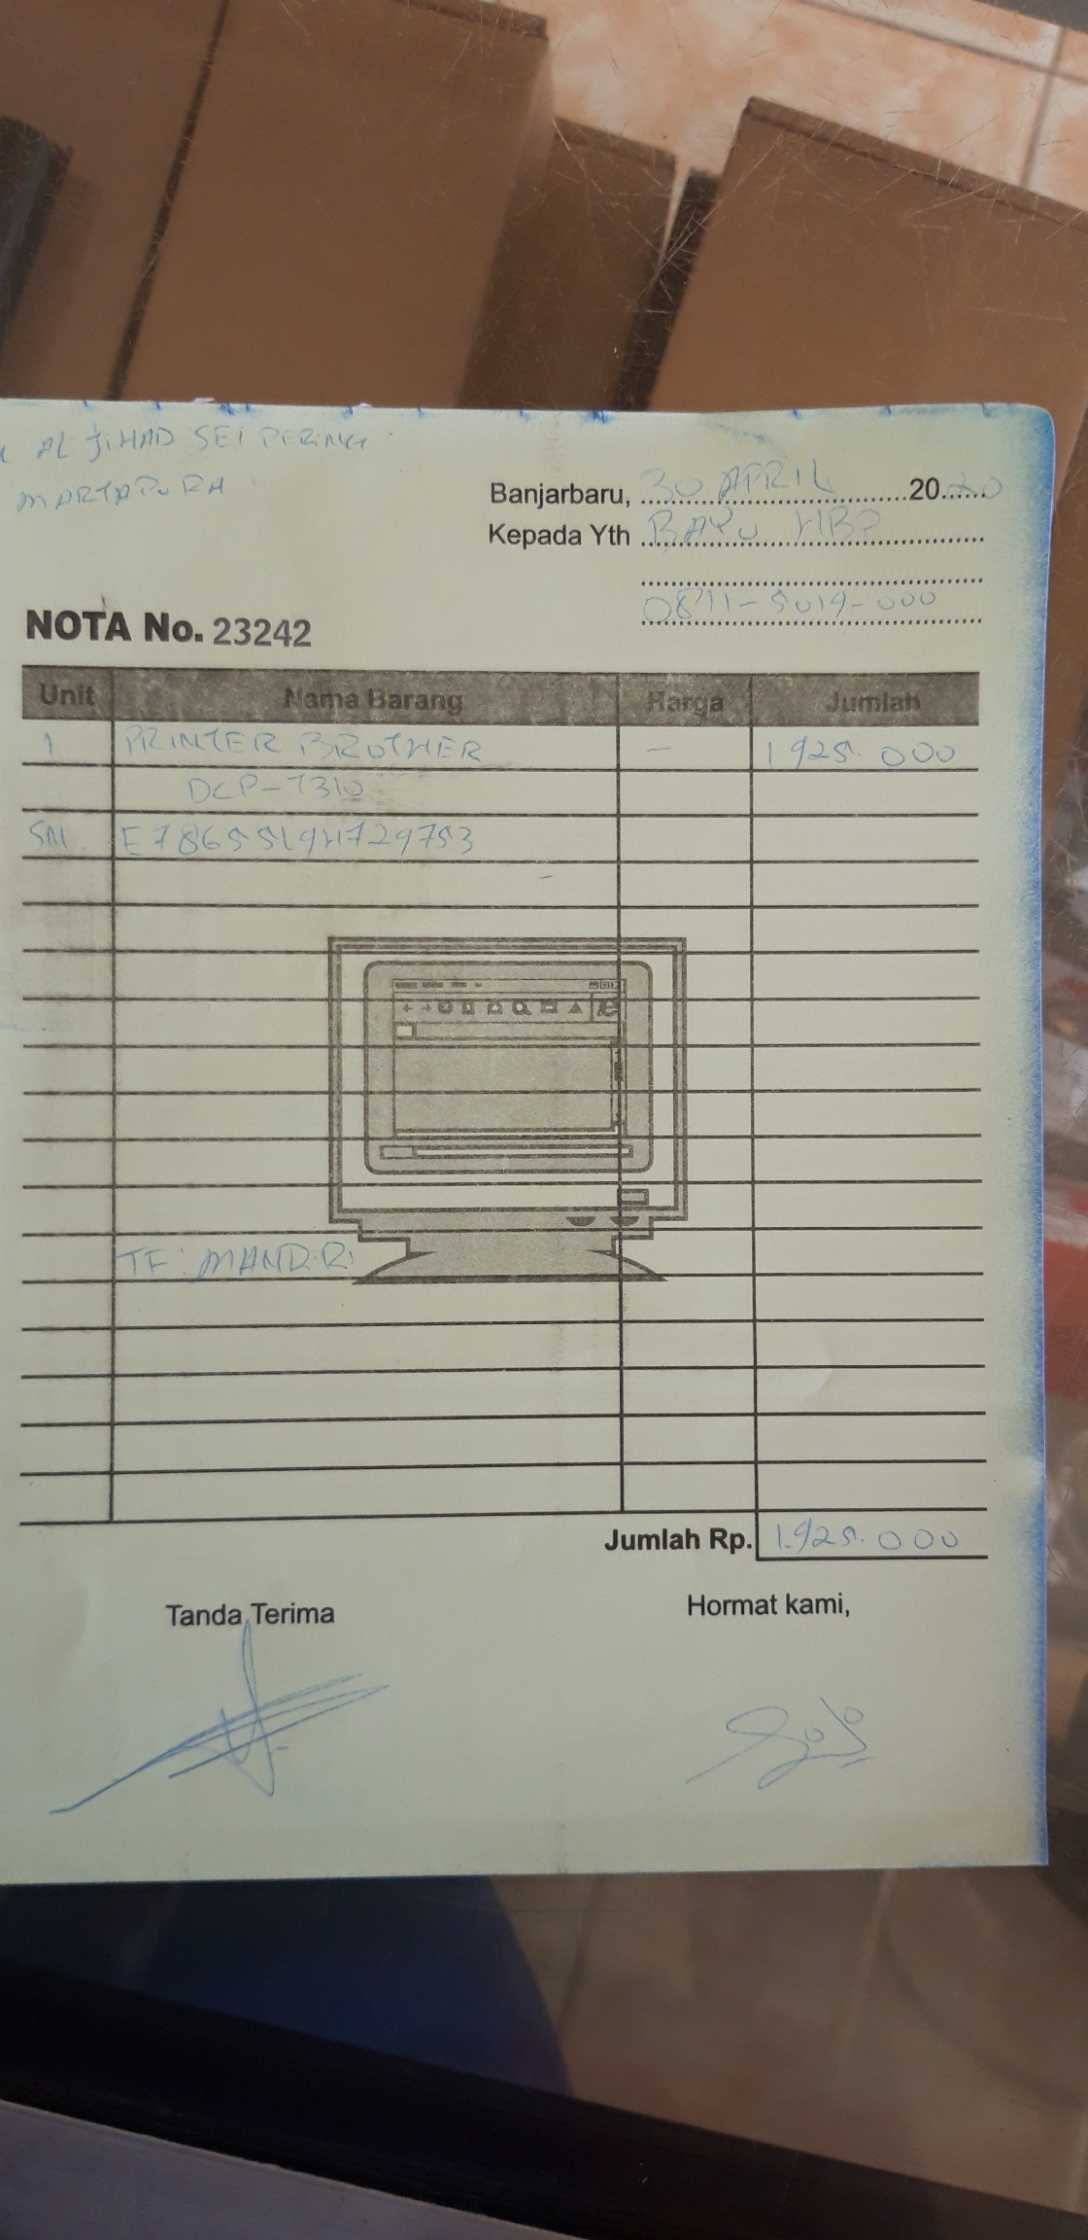 AL JIHAD SEI PERING
MARTAPURA
Banjarbaru, 30 APRIL 2020
Kepada Yth BAYU
0811-5019-000
NOTA No. 23242
Unit Nama Barang Harga Jumlah
1 PRINTER BROTHER - 1.925.000
DCP-7310
SN
TF: MANDIRI
Jumlah Rp. 1.925.000
Tanda Terima Hormat kami,